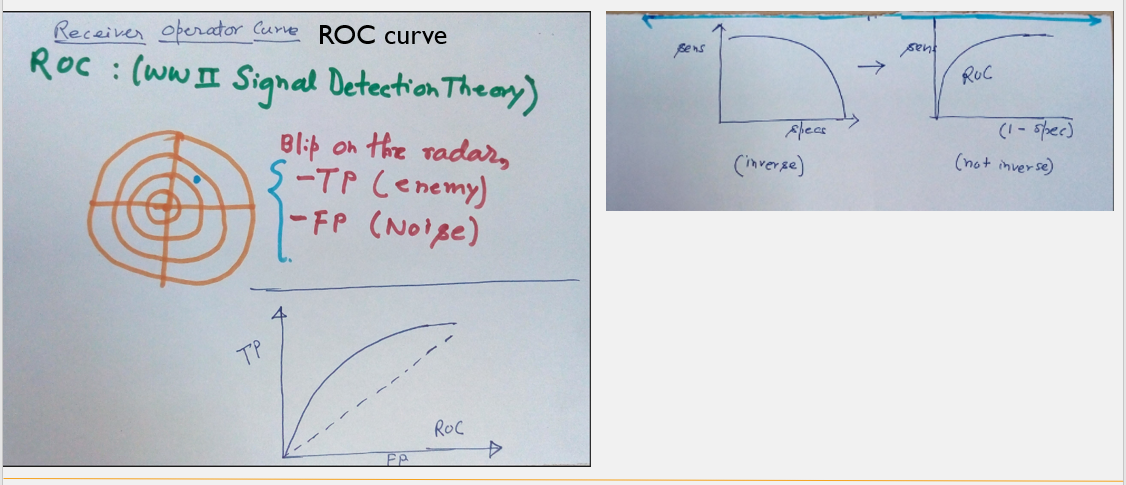 Receiver Operator Curve ROC curve
ROC : (WW II Signal Detection Theory)
Blip on the radar,
- TP (enemy)
- FP (Noise)
TP
ROC
FP
sens
specs
(inverse)
sens
ROC
(1 - spec)
(not inverse)